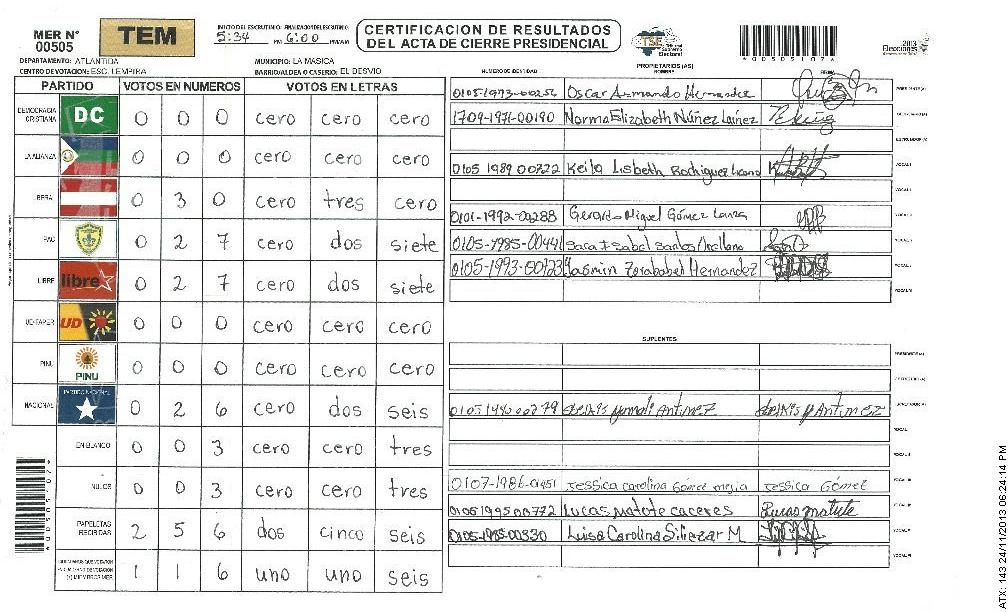 MER N°
00505
TEM
INICIO DEL ESCRUTINIO: FINALIZACION DEL ESCRUTINIO:
5:34 PM 6:00 PM/AM
CERTIFICACION DE RESULTADOS
DEL ACTA DE CIERRE PRESIDENCIAL
TSE Tribunal Supremo Electoral
*00505107*
2013
Elecciones
DEPARTAMENTO: ATLANTIDA
MUNICIPIO: LA MASICA
CENTRO DE VOTACION: ESC. LEMPIRA
BARRIO/ALDEA O CASERIO: EL DESVIO
PARTIDO VOTOS EN NUMEROS VOTOS EN LETRAS
DEMOCRACIA CRISTIANA DC 0 0 0 cero cero cero
LA ALIANZA 0 0 0 cero cero cero
0 3 0 cero tres cero
PAC 0 2 7 cero dos siete
LIBRE libre 0 2 7 cero dos siete
UD-FAPER UD 0 0 0 cero cero cero
PINU PINU 0 0 0 cero cero cero
NACIONAL PARTIDO NACIONAL 0 2 6 cero dos seis
EN BLANCO 0 0 3 cero cero tres
NULOS 0 0 3 cero cero tres
PAPELETAS RECIBIDAS 2 5 6 dos cinco seis
1 1 6 uno uno seis
*00505107*
PROPIETARIOS (AS)
NUMERO DE IDENTIDAD NOMBRE FIRMA
0105-1973-00256 Oscar Armando Hernandez PRESIDENTE(A)
1709-1971-00190 Norma Elizabeth Núñez Lainez
ESCRUTADOR (A)
0105 1989 00722 Keila Lisbeth Rodriguez VOCAL I
0101-1992-00288 Gerardo Miguel Gómez Lanza
0105-1985-00441 Sara Isabel Santos Orellana
0105-1993-00123 Yasmin Zorababel Hernandez
SUPLENTES
PRESIDENTE(A)
ESCRUTADOR (A)
Antinez
0107-1986-01451 Jessica carolina Gómez mejia Jessica Gómez
0105 1995 00772 Lucas Matute caceres Lucas matute
0105-1985-00330 Luisa Carolina Siliezar M.
ATX: 143 24/11/2013 06:24:14 PM